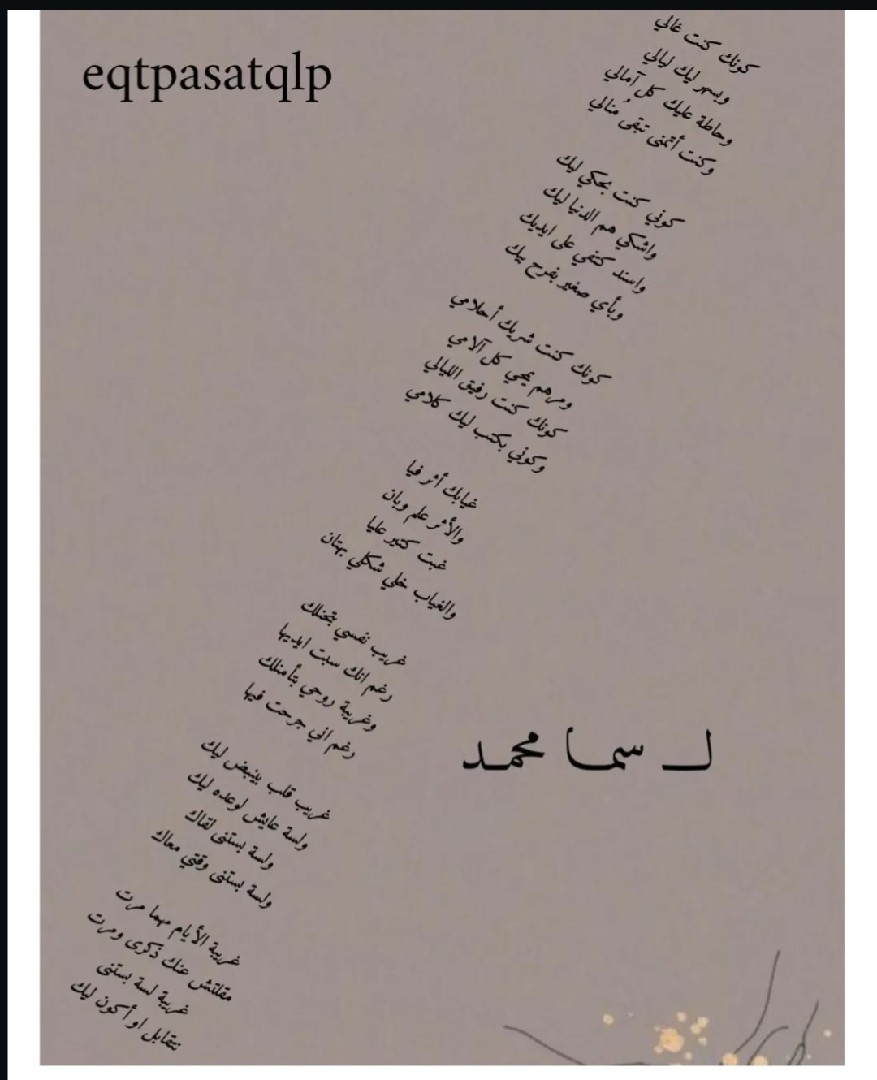 eqtpasatqlp
كونك كنت غالي
وبسهر ليك ليالي
وحاطة عليك كل آمالي
وكنت أتمنى تبقى مُنالي
كوني كنت بحكي ليك
واشكي هم الدنيا ليك
واسند كتفي على ايديك
وبأي صغير بفرح بيك
كونك كنت شريك أحلامي
ومرهم يمحي كل آلامي
كونك كنت رفيق الليالي
وكوني بكتب ليك كلامي
غيابك أثر فيا
والأثر علم وبان
غبت كتير عليا
والغياب خلي شكلي بهتان
غريب نفسي بتحنلك
رغم انك سبت ايديها
وغريبة روحي بتأمنلك
رغم اني جرحت فيها
غريب قلب بينبض ليك
ولسة عايش لوعده ليك
ولسة بستنى لقاك
ولسة بستنى وقتي معاك
غريبة الأيام مهما مرت
مقلتش عنك ذكرى ومرت
غريبة لسة بستنى
نتقابل او أكون ليك
لـ سما محمد